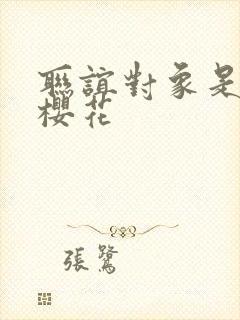 聯誼對象是
櫻花
張鷺